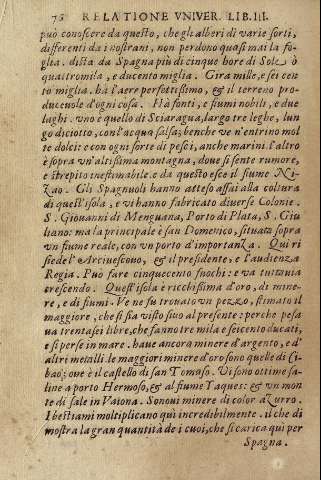 76 RELATIONE VNIVER. LIB. III.
può conoscere da questo, che gli alberi di varie sorti,
differenti da i nostrani, non perdono quasi mai la fo-
glia. dista da Spagna più di cinque hore di Sole ò
quattromila, e ducento miglia. Gira mille, e sei cen
to miglia. ha l'aere perfettissimo, & il terreno pro-
duceuole d'ogni cosa. Hà fonti, e fiumi nobili, e due
laghi. vno è quello di Sciaragua, largo tre leghe, lun
go diciotto, con l'acqua salsa; benche ve n'entrino mol
te dolci: e con ogni sorte di pesci, anche marini. l'altro
è sopra vn'altissima montagna, doue si sente rumore,
e strepito inestimabile. e da questo esce il fiume Ni-
zao. Gli Spagnuoli hanno atteso assai alla coltura
di quest'isola, e vi hanno fabricato diuerse Colonie.
S. Giouanni di Menguana, Porto di Plata, S. Giu
liano: ma la principale è san Domenico, situata sopra
vn fiume reale, con vn porto d'importanza. Qui ri
siede l'Arciuescouo, & il presidente, e l'audienza
Regia. Può fare cinquecento fuochi: e va tuttauia
crescendo. Quest'isola è ricchissima d'oro, di mine-
re, e di fiumi. Ve ne fu trouato vn pezzo, stimato il
maggiore, che si sia visto sino al presente: perche pesa
ua trentasei libre, che fanno tre mila e seicento ducati,
e si perse in mare. haue ancora minere d'argento, e d'
altri metalli. le maggiori minere d'oro sono quelle di Ci
bao; oue è il castello di san Tomaso. Vi sono ottime sa-
line a porto Hermoso, & al fiume Yaques: & vn mon
te di sale in Vaiona. Sonoui minere di color azurro.
I bestiami moltiplicano quì incredibilmente. il che di
mostra la gran quantità de i cuoi, che si carica qui per
Spagna.